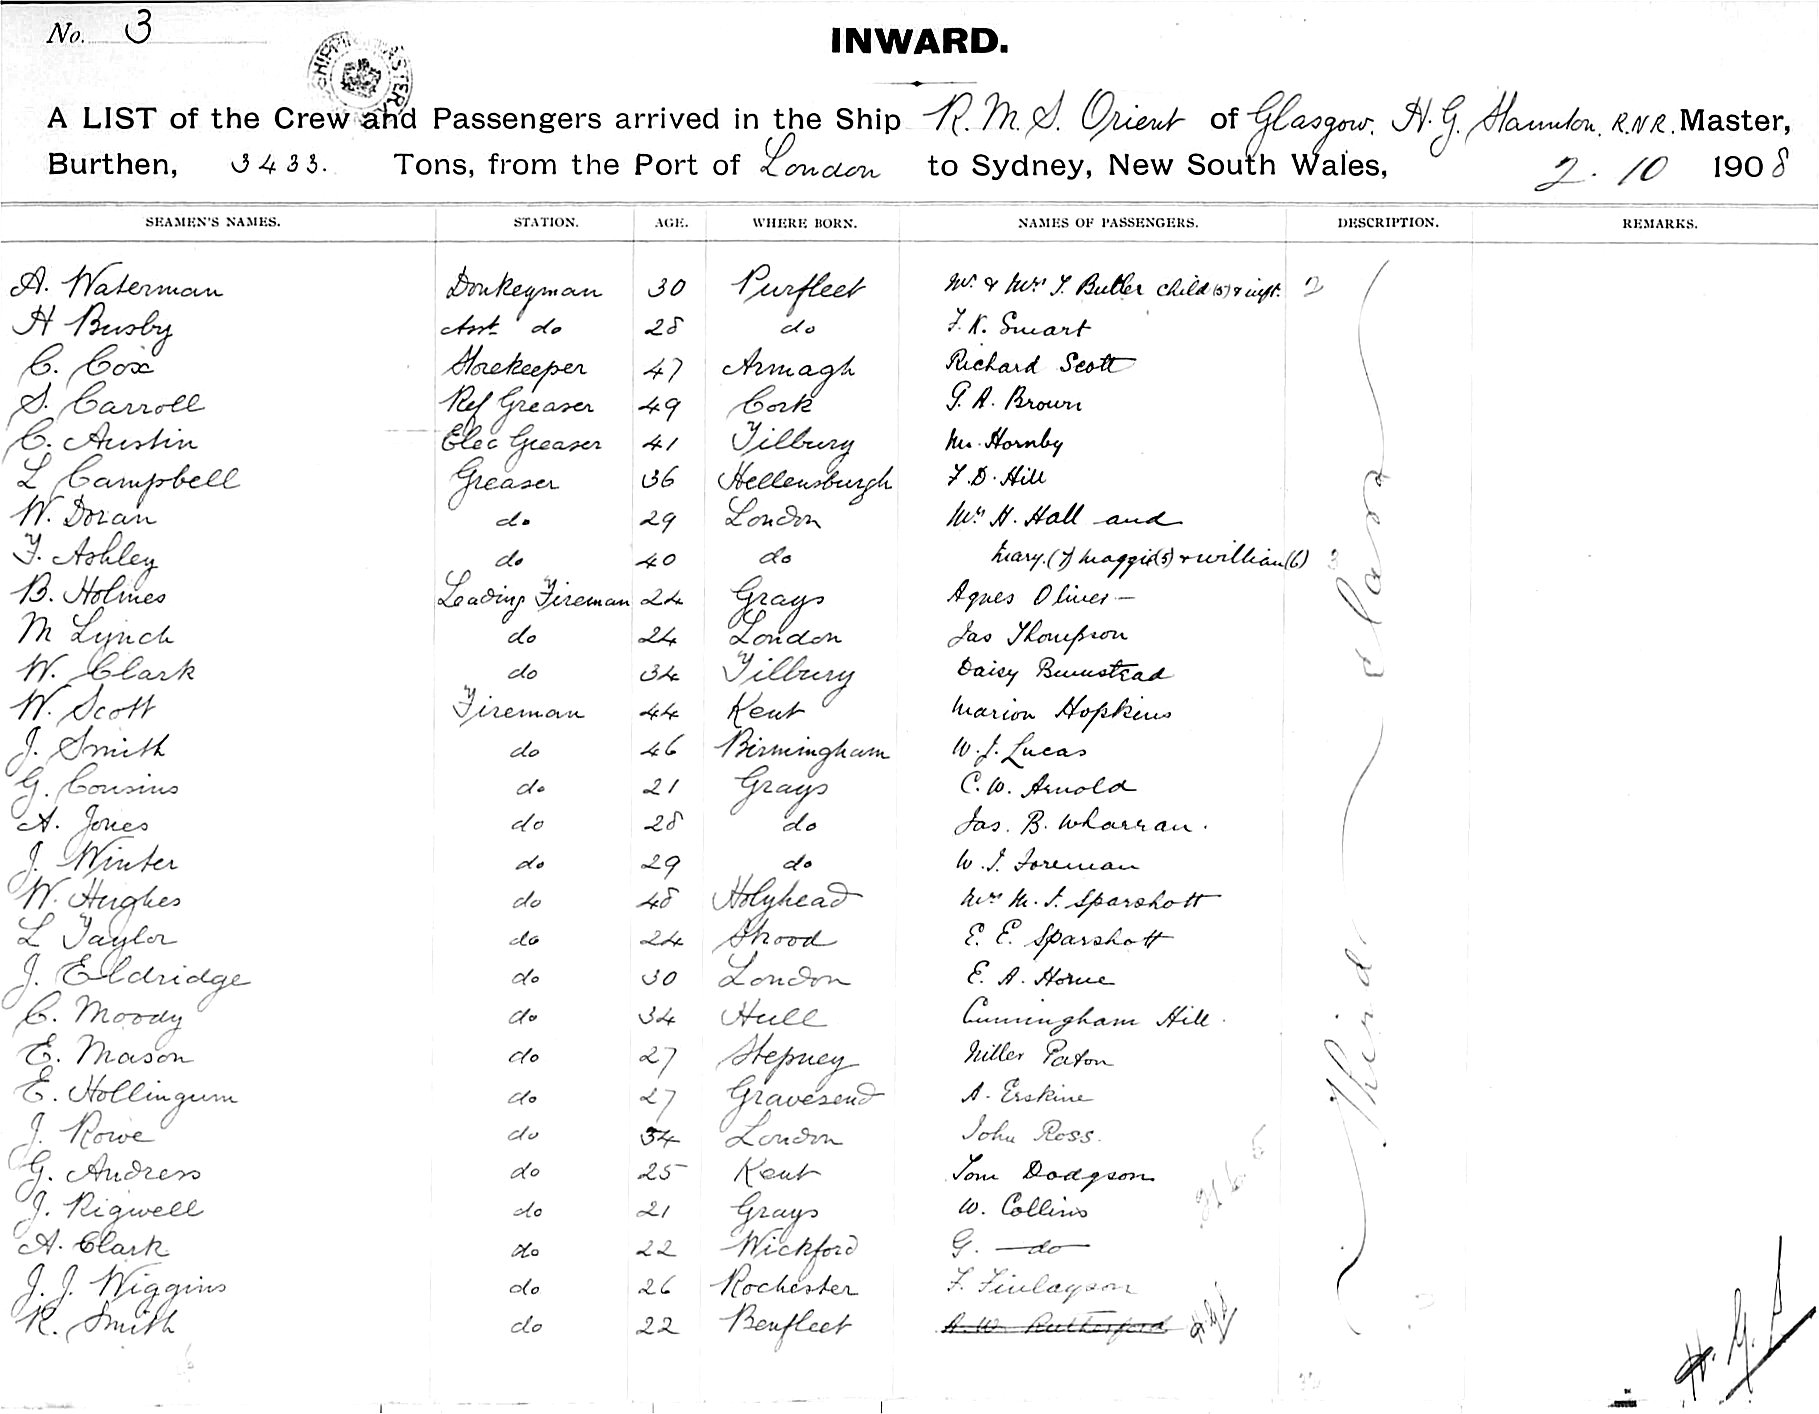 No. 3
INWARD.
A LIST of the Crew and Passengers arrived in the Ship R.M.S. Orient of Glasgow, H.G. Staunton, R.N.R. Master,
Burthen, 3433. Tons, from the Port of London to Sydney, New South Wales, 2.10 1908
SEAMEN'S NAMES. STATION. AGE. WHERE BORN. NAMES OF PASSENGERS. DESCRIPTION. REMARKS.
A. Waterman Donkeyman 30 Purfleet Mr. & Mrs T. Butler child (5) & inft. 2
H Busby Asst do 28 do F.K. Smart
C. Cox Storekeeper 47 Armagh Richard Scott
S. Carroll Ref Greaser 49 Cork G.A. Brown
C. Austin Elec Greaser 41 Tilbury Hornby
L Campbell Greaser 36 Hellensburgh F.D. Hill
W. Doran do 29 London Mrs H. Hall and
F. Ashley do 40 do Mary (7) Maggie (5) & William (6) 3
B. Holmes Leading Fireman 24 Grays Agnes Oliver —
M Lynch do 24 London Jas Thompson
W. Clark do 34 Tilbury Daisy Bumstead
W. Scott Fireman 44 Kent Marion Hopkins
J. Smith do 46 Birmingham W.J. Lucas
G. Cousins do 21 Grays C.W. Arnold
A. Jones do 28 do Jas. B. Wharran.
J. Winter do 29 do W.J. Foreman
W. Hughes do 48 Holyhead Mrs M.J. Sparshott
L Taylor do 24 Strood E. E. Sparshott
J. Eldridge do 30 London E. A. Horne
C. Moody do 34 Hull Cunningham Hill.
E. Mason do 27 Stepney Miller Paton
E. Hollingum do 27 Gravesend A. Erskine
J. Rowe do 34 London John Ross.
G. Andress do 25 Kent Tom Dodgson
J. Rigwell do 21 Grays W. Collins
A. Clark do 22 Wickford G. — do —
J. J. Wiggins do 26 Rochester F. Finlayson
R. Smith do 22 Benfleet A.W. Rutherford H.G.S
Third Class
H.G.S